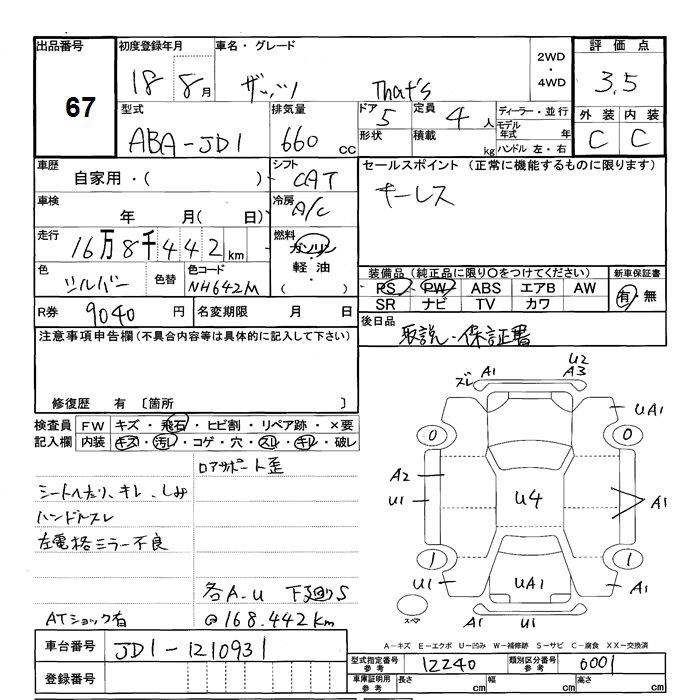 出品番号
67
初度登録年月
18 8月
車名・グレード
ザッツ That's
2WD
・
4WD
評価点
3.5
型式
ABA-JD1
排気量
660 cc
ドア
5
定員
4 人
形状
積載
kg
ディーラー・並行
モデル
年式 年
ハンドル 左・右
外装 内装
C C
車歴
自家用・( )
シフト
CAT
セールスポイント (正常に機能するものに限ります)
キーレス
車検
年 月( 日)
冷房
A/C
走行
16万8千442km
燃料
ガソリン
軽油
( )
色
シルバー
色替
色コード
NH642M
装備品(純正品に限り○をつけてください)
新車保証書
PS PW ABS エアB AW
SR ナビ TV カワ
有・無
R券 9040 円
名変期限 月 日
後日品
取説・保証書
注意事項申告欄(不具合内容等は具体的に記入して下さい)
修復歴 有 〔箇所 〕
検査員
記入欄
FW キズ・飛石・ヒビ割・リペア跡・×要
内装 キズ・汚レ・コゲ・穴・スレ・キレ・破レ
ロアサポート歪
シートヘたり、キレ、しみ
ハンドルスレ
左電格ミラー不良
各A.U 下廻りS
ATショック有
@168.442km
ズレ A1
U2
A3
UA1
0
0
A2
U1
U4
A1
1
1
U1
UA1
A1
スペア
A1 U1
車台番号 JD1-1210931
登録番号
A-キズ E-エクボ U-凹み W-補修跡 S-サビ C-腐食 XX-交換済
型式指定番号
参考
12240
類別区分番号
参考
0001
車庫証明用
参考
長さ cm 幅 cm 高さ cm